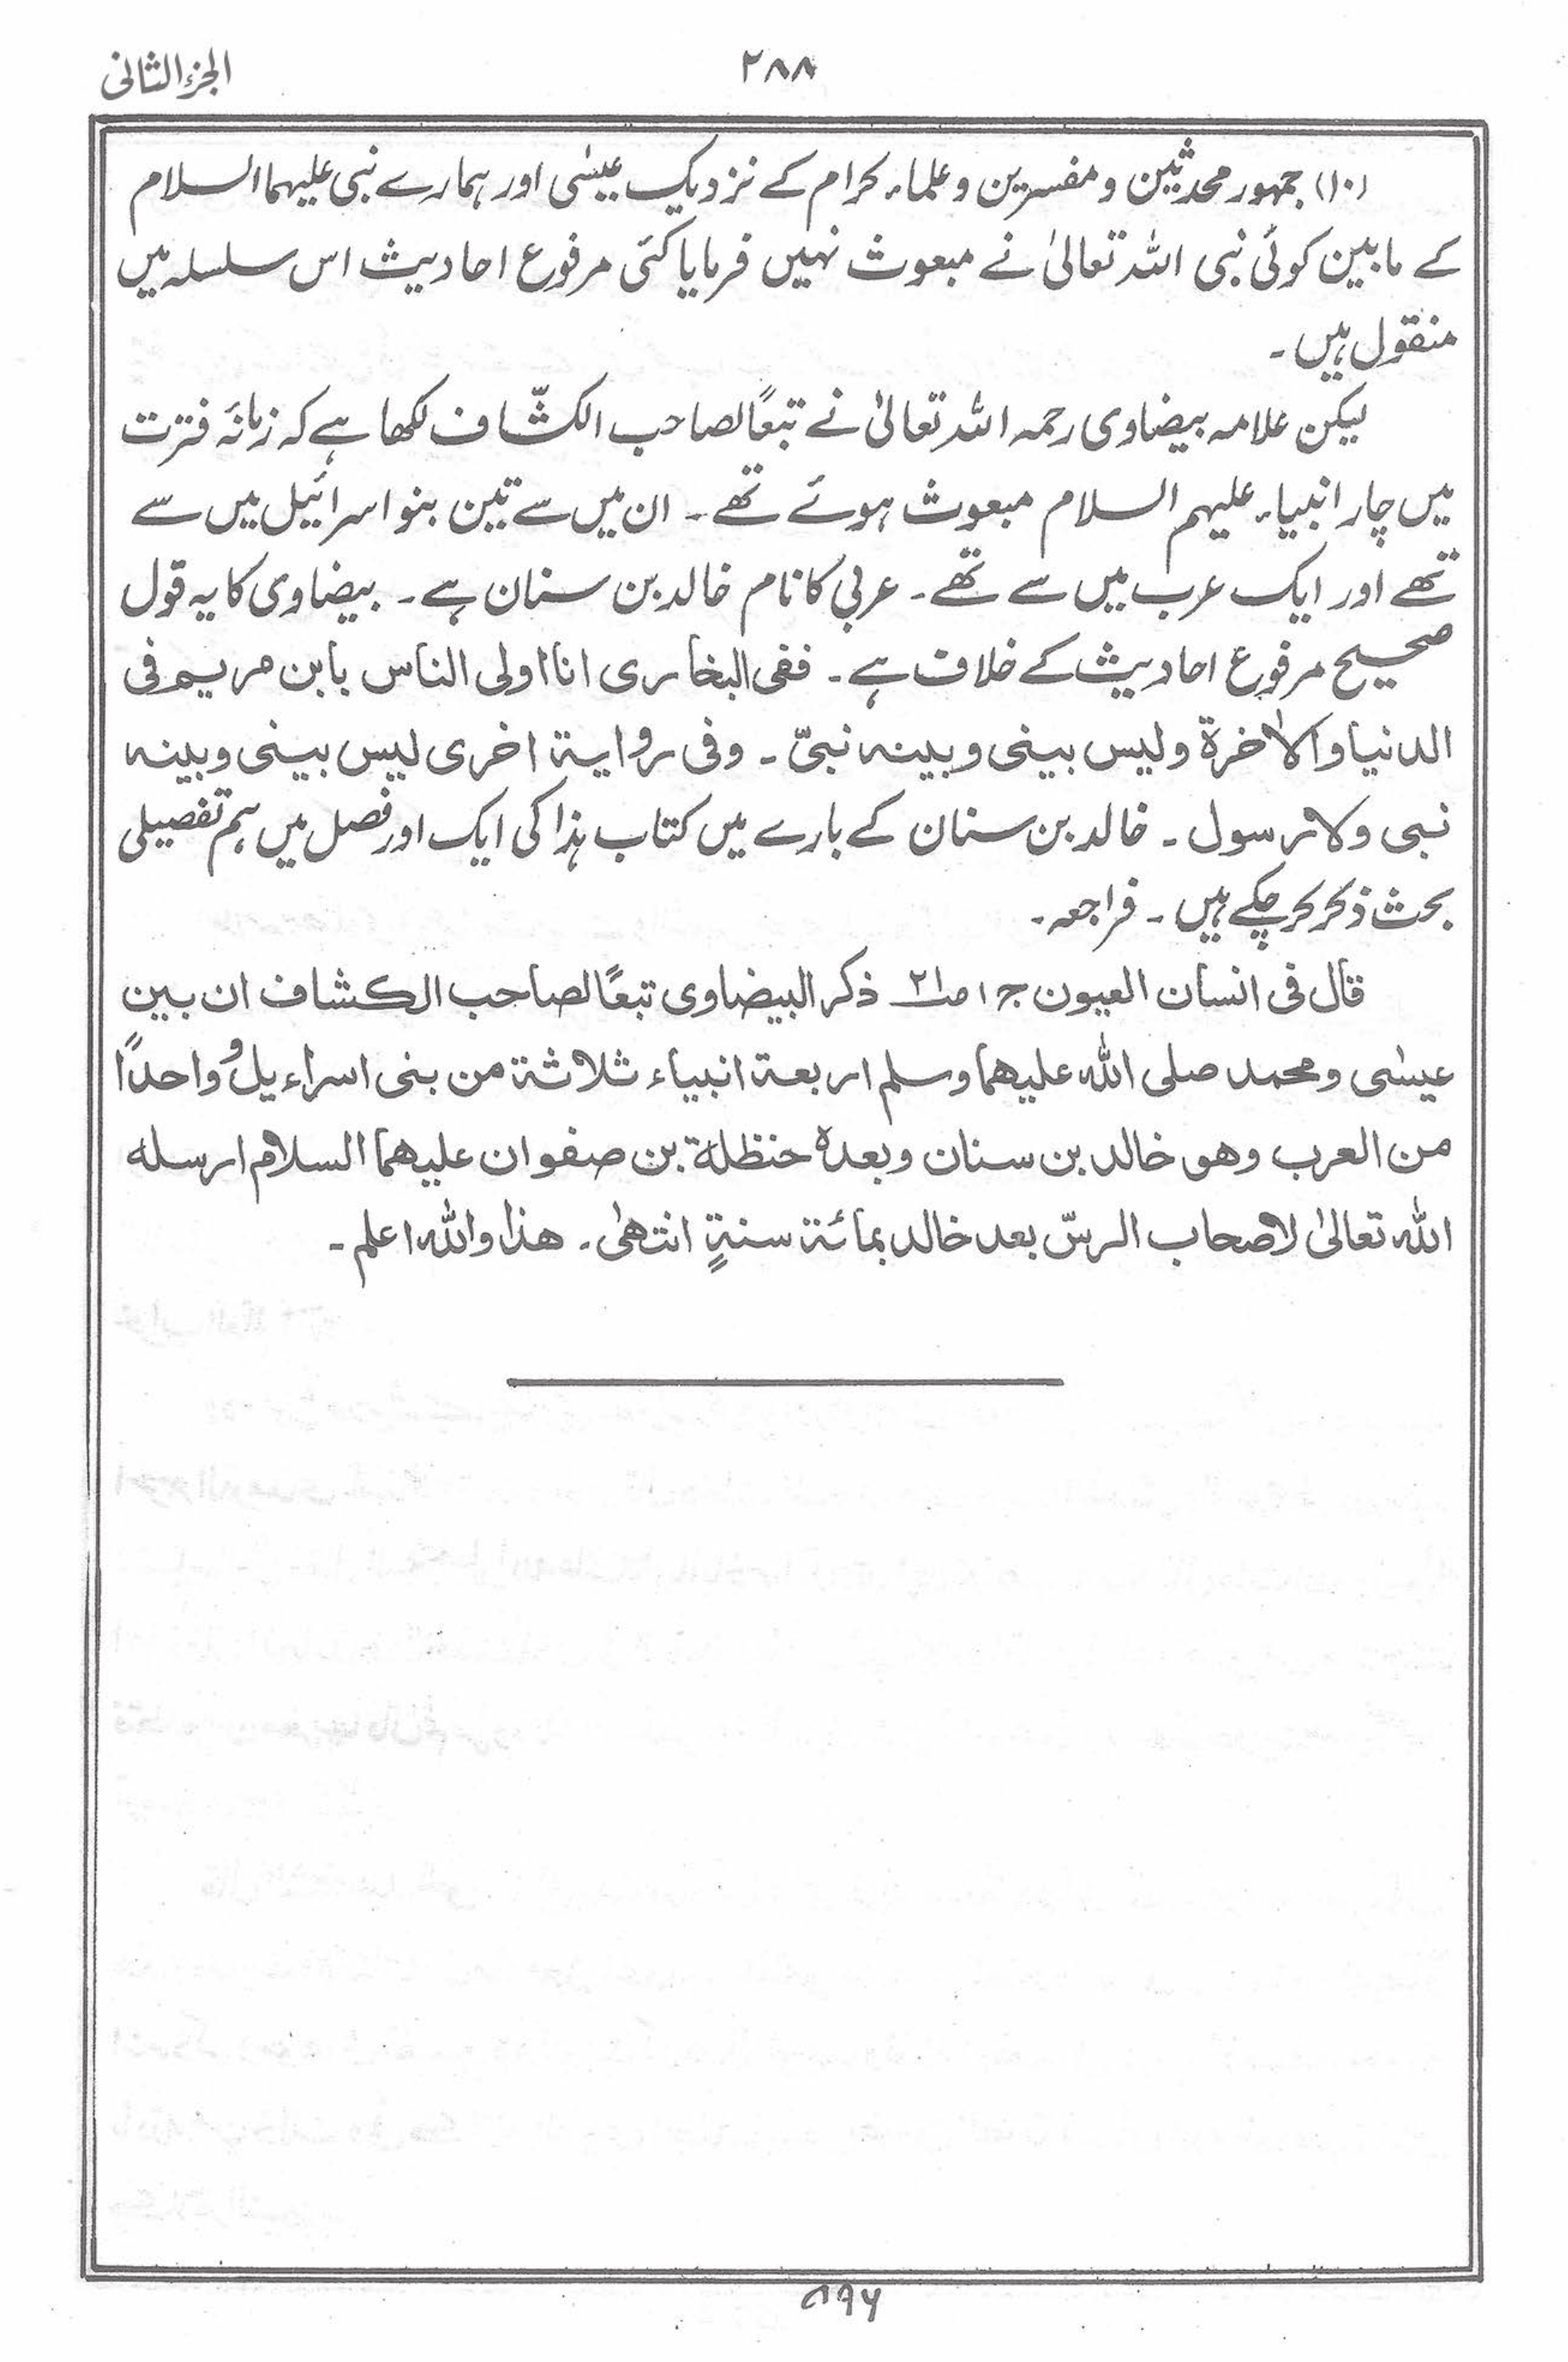 الجزء الثانی
۲۸۸
(۱۰) جمہور محدثین و مفسرین و علماء کرام کے نزدیک عیسٰی اور ہمارے نبی علیہما السلام
کے مابین کوئی نبی اللہ تعالیٰ نے مبعوث نہیں فرمایا کئی مرفوع احادیث اس سلسلہ میں
منقول ہیں ۔
لیکن علامہ بیضاوی رحمہ اللہ تعالیٰ نے تبعًا لصاحب الکشّاف لکھا ہے کہ زمانۂ فترت
میں چار انبیاء علیہم السلام مبعوث ہوئے تھے ۔ ان میں سے تین بنو اسرائیل میں سے
تھے اور ایک عرب میں سے تھے ۔ عربی کا نام خالد بن سنان ہے ۔ بیضاوی کا یہ قول
صحیح مرفوع احادیث کے خلاف ہے ۔ ففی البخاری انا اولی الناس بابن مریم فی
الدنیا والاٰخرة ولیس بینی وبینہ نبیّ ۔ وفی روایة اخری لیس بینی وبینہ
نبی ولا رسول ۔ خالد بن سنان کے بارے میں کتاب ہذا کی ایک اور فصل میں ہم تفصیلی
بحث ذکر کر چکے ہیں ۔ فراجعہ ۔
قال فی انسان العیون ج۱ ص۲۱ ذکر البیضاوی تبعًا لصاحب الکشاف ان بین
عیسٰی و محمد صلی اللہ علیہما وسلم اربعة انبیاء ثلاثة من بنی اسراءیل و واحدًا
من العرب وھو خالد بن سنان وبعدہ حنظلة بن صفوان علیھما السلام ارسلہ
اللہ تعالیٰ لاصحاب الرسّ بعد خالد بمائة سنةٍ انتھیٰ ۔ ھذا واللہ اعلم ۔